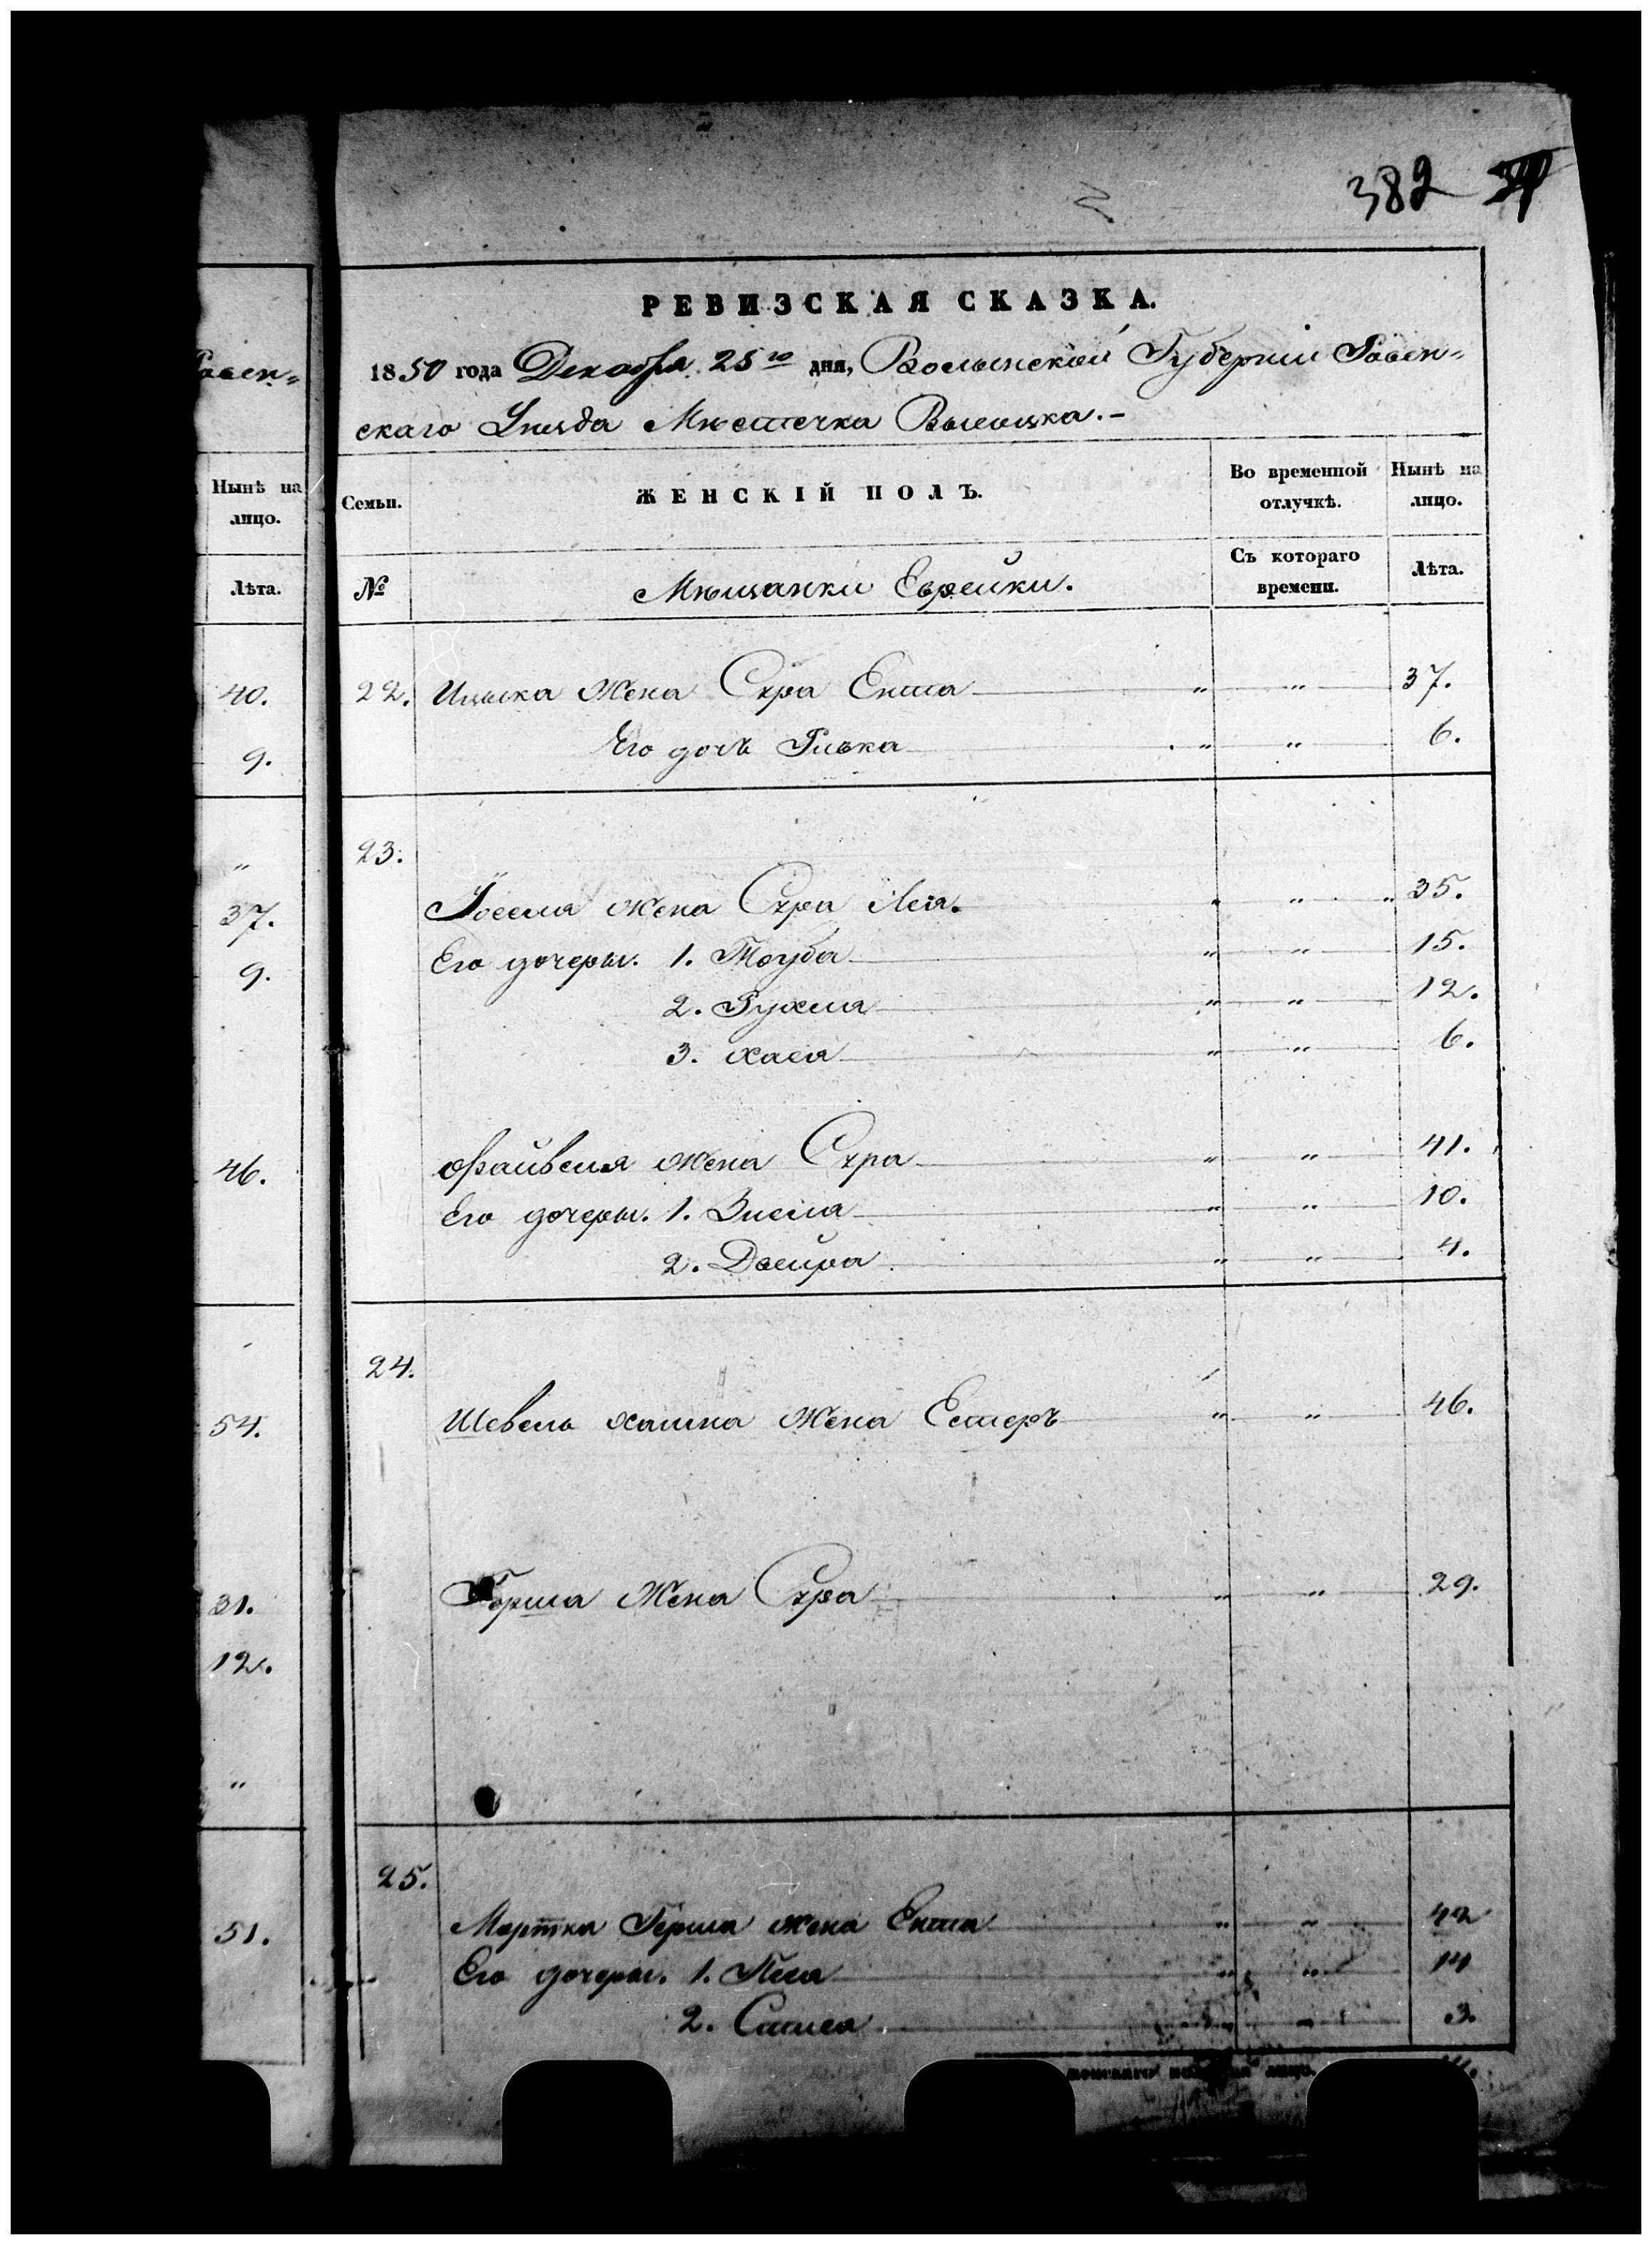 382
Равен-
Нынѣ на
лицо.
Лѣта.
40.
9.
"
37.
9.
46.
54.
31.
12.
"
51.
РЕВИЗСКАЯ СКАЗКА.
1850 года Декабря 25го дня, Волынской Губерніи Равен-
скаго Уѣзда Мѣстечка Высоцка.-
Семьи. ЖЕНСКІЙ ПОЛЪ. Во временной отлучкѣ. Нынѣ на лицо.
№ Мѣщанки Еврейки. Съ котораго времени. Лѣта.
22. Ицька жена Сура Ента " " 37.
Его дочь Ривка " " 6.
23.
Іоселя жена Сура Лея. " " " 35.
Его дочеры. 1. Тоуба " " 15.
2. Рухля " " 12.
3. Хася " " 6.
Файвеля жена Сура " " 41.
Его дочеры. 1. Зисля " " 10.
2. Двейра " " 4.
24.
Шевель жена Естеръ " " 46.
Герша жена Сура " " 29.
25.
Мортка Герша жена Ента " " 42
Его дочеры. 1. " " 14
2. " " 3.
женскаго на лицо.